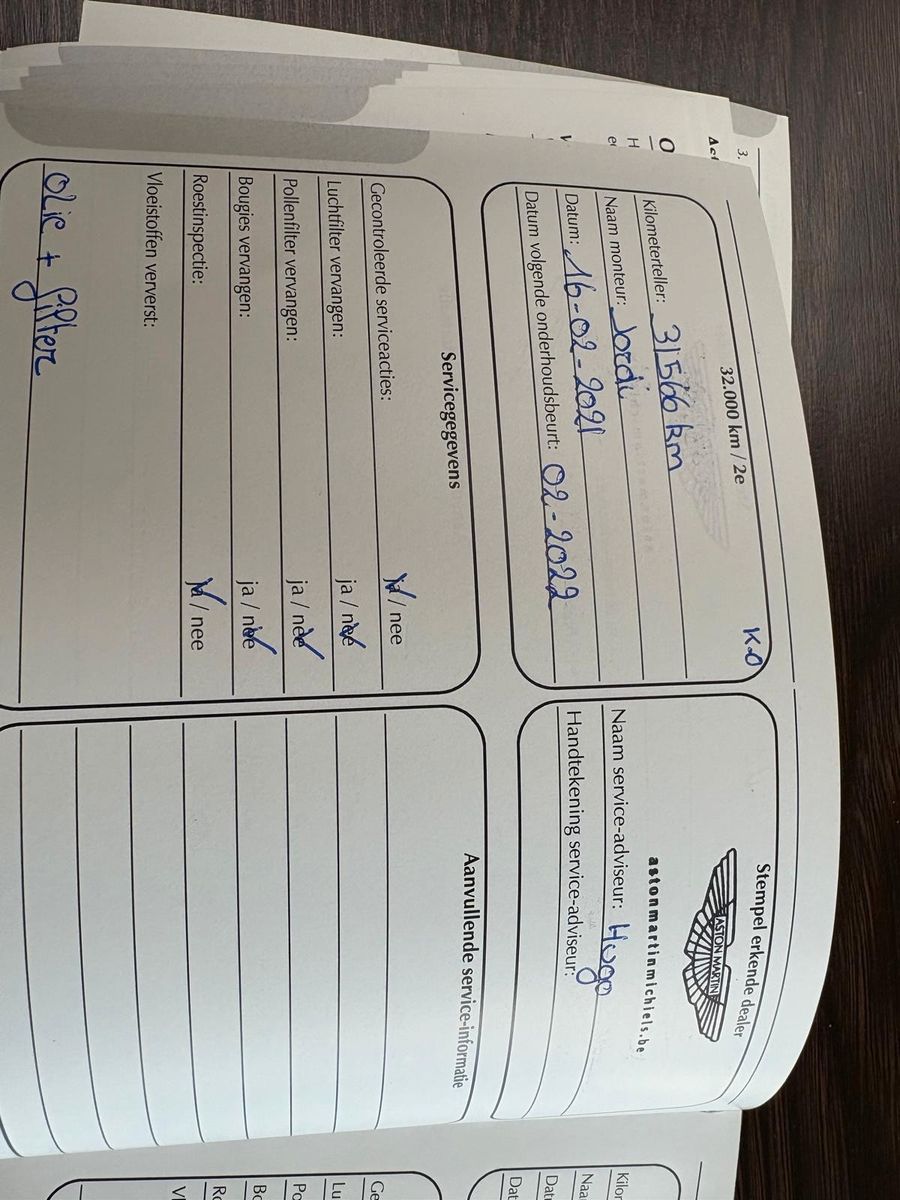 32.000 km / 2e
K.O
Kilometerteller: 31566 km
Naam monteur: Jordi
Datum: 16-02-2021
Datum volgende onderhoudsbeurt: 02-2022
Stempel erkende dealer
ASTON MARTIN
astonmartinmichiels.be
Naam service-adviseur: Hugo
Handtekening service-adviseur:
Servicegegevens
Gecontroleerde serviceacties: ja / nee
Luchtfilter vervangen: ja / nee
Pollenfilter vervangen: ja / nee
Bougies vervangen: ja / nee
Roestinspectie: ja / nee
Vloeistoffen ververst:
Olie + filter
Aanvullende service-informatie
3.